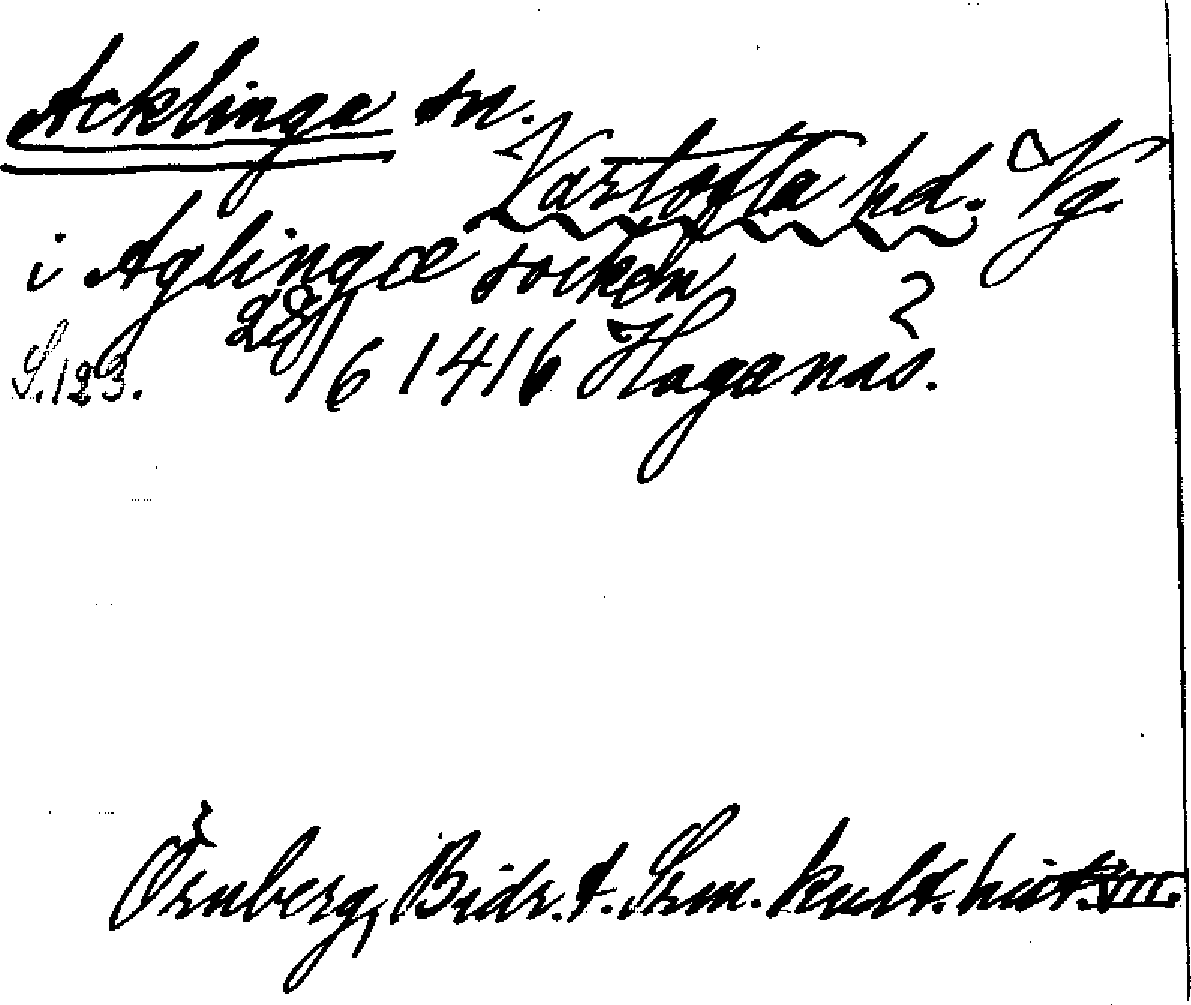 Acklinga sn.
Vartofta hd. Vg.
i Aglingæ socken
S. 123. 28/6 1416 Haganæs. ?
Örnberg, Bidr. t. Srm. kult. hist. VII.